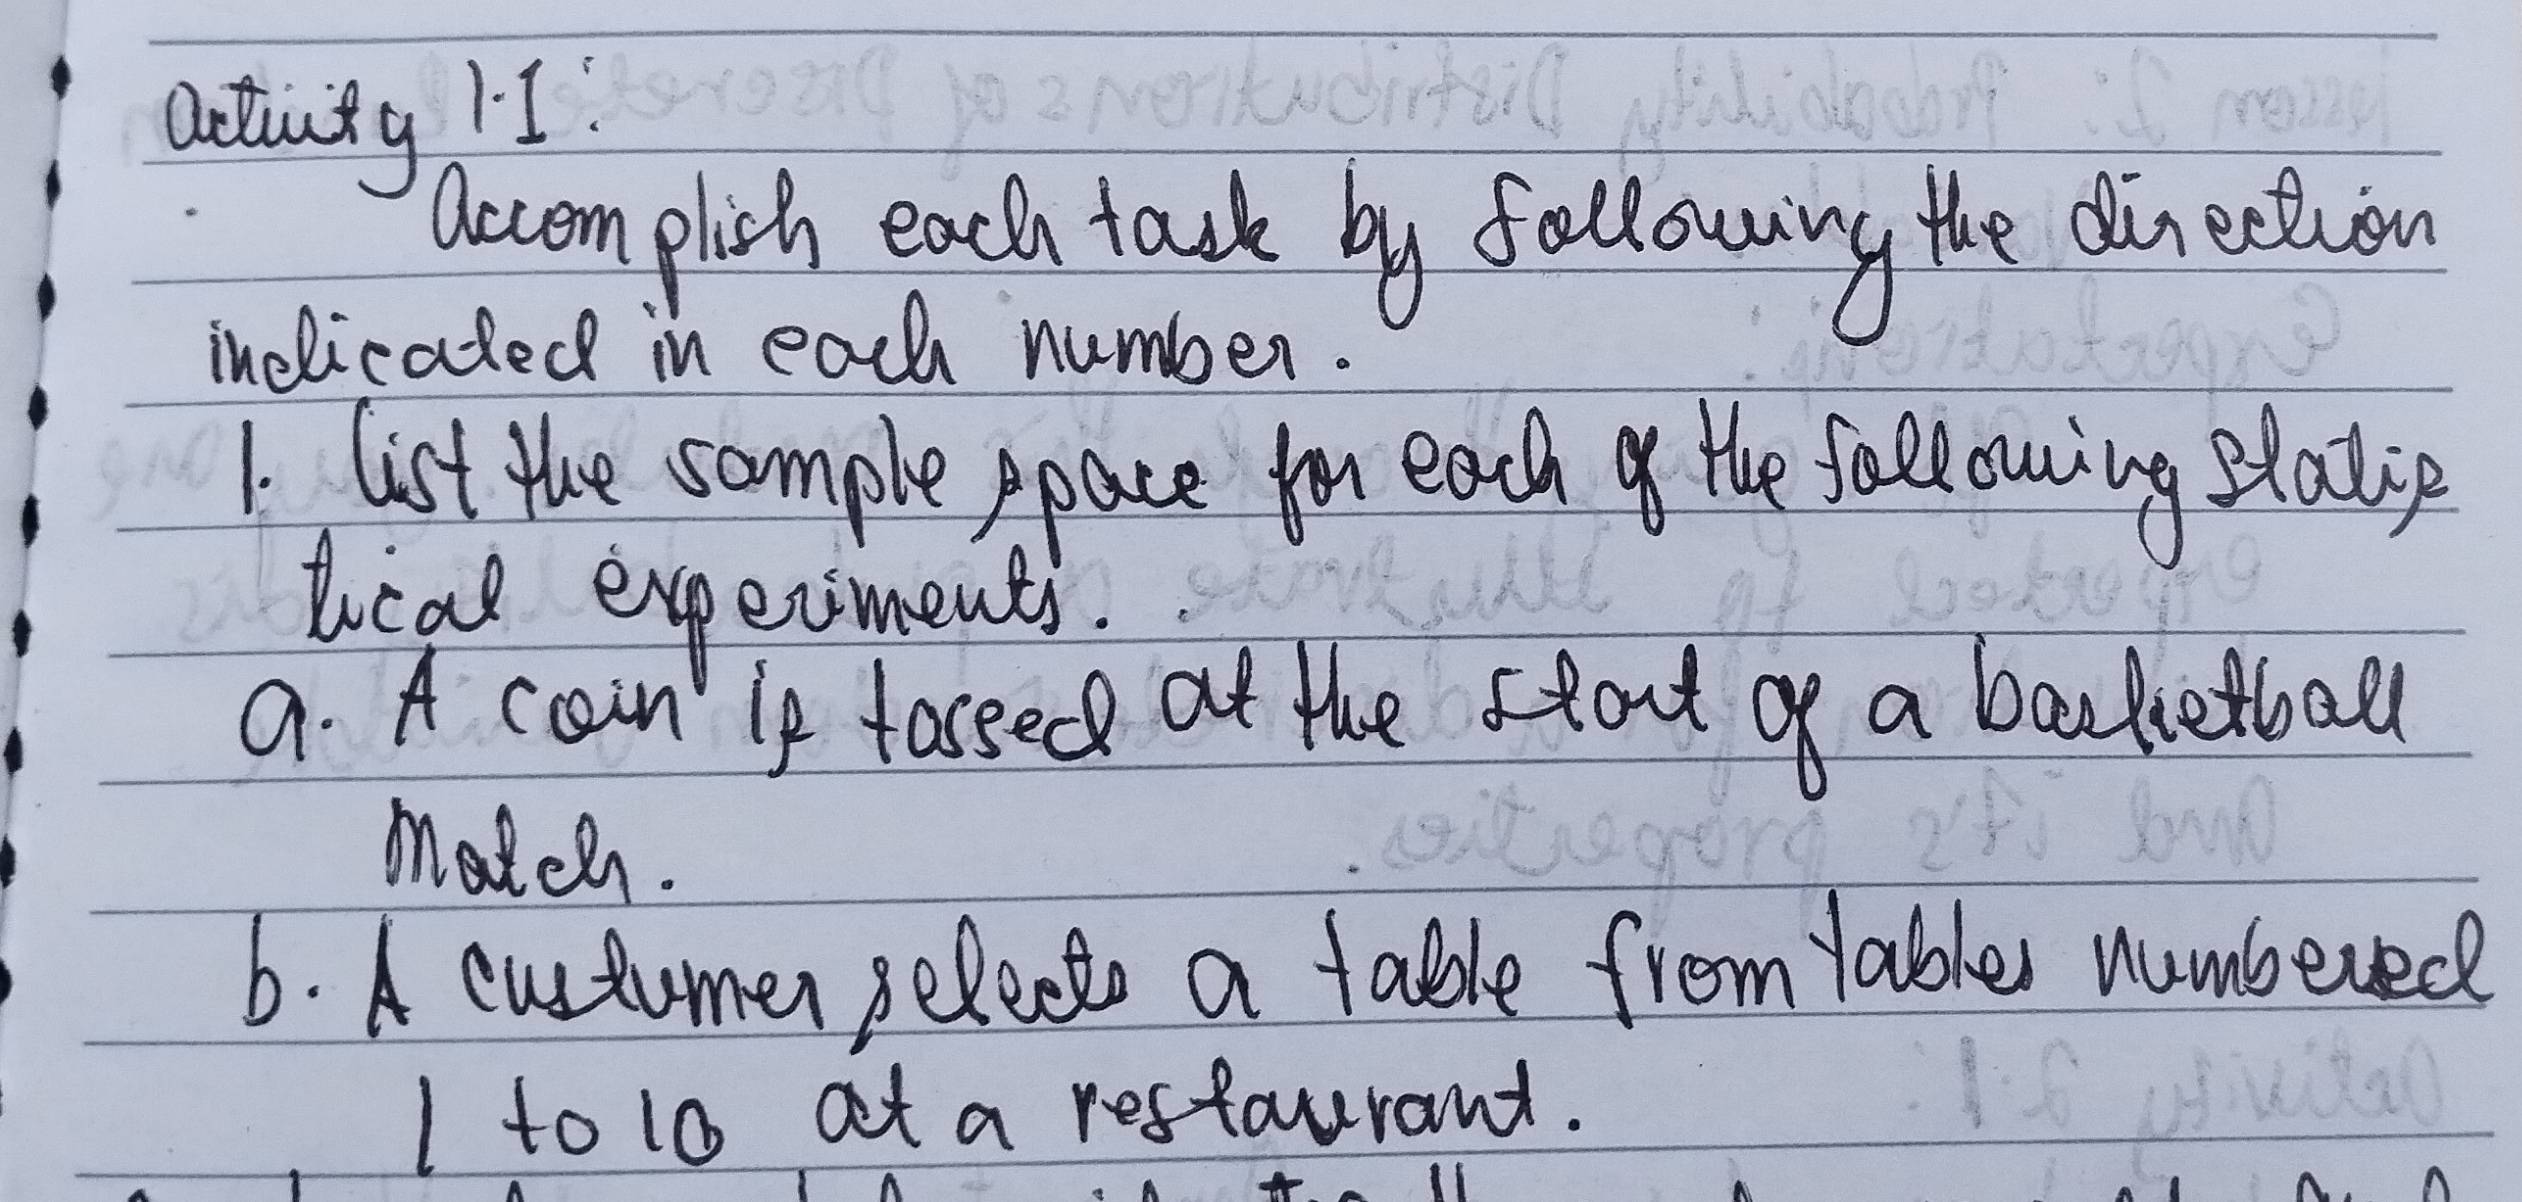 Activity 1.1:
Accomplish each task by following the direction
indicated in each number.
1. List the sample space for each of the following statis
tical experiments.
a. A coin is tossed at the start of a basketball
match.
b. A custumer selects a table from tables numbered
1 to 10 at a restaurant.